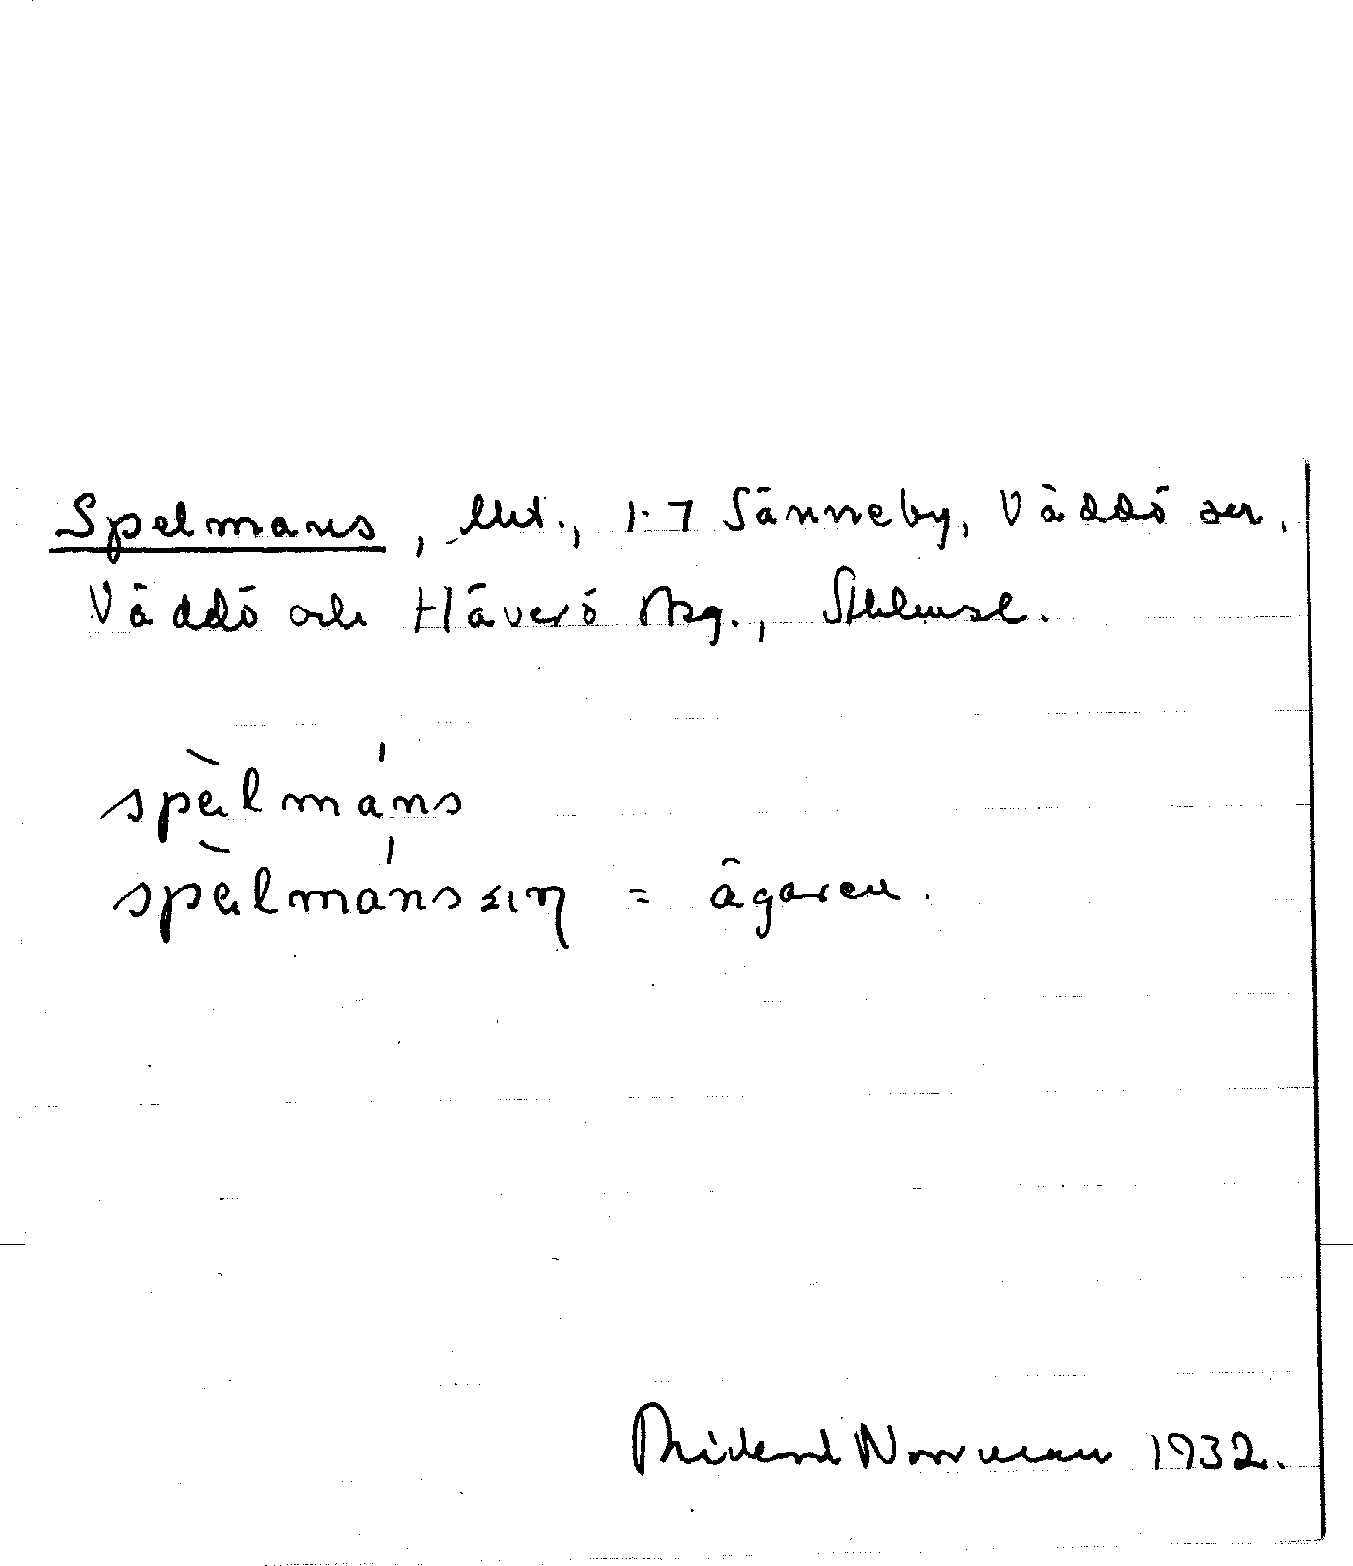 Spelmans, lht., 1.7 Sänneby, Väddö sn.
Väddö och Häverö skg., Sthlmsl.
spèlmáns
spèlmáns = ägaren.
Norrman 1932.